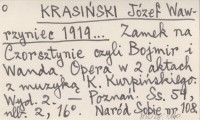 KRASIŃSKI Józef Waw-
rzyniec 1919... Zamek na
Czorsztynie czyli Bojmir i
Wanda. Opera w 2 aktach
z muzyką K. Kurpińskiego.
Wyd. 2. — Poznań. Ss. 54,
nlb. 2, 16°. Naród Sobie nr 108.